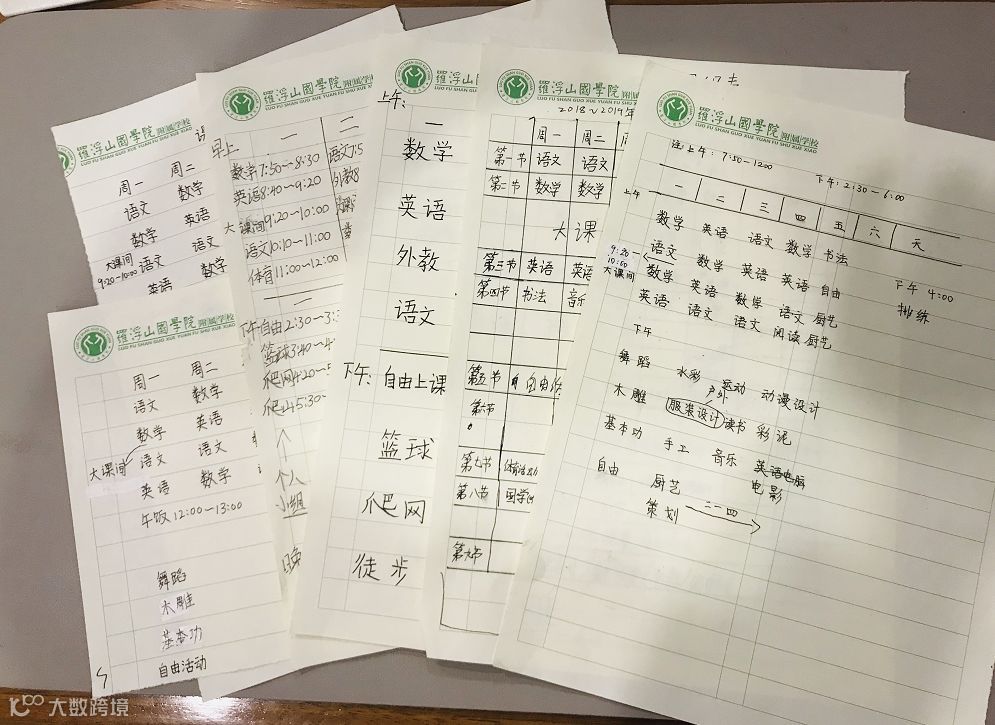 羅浮山國學院附属学校
LUO FU SHAN GUO XUE YUAN FU SHU XUE XIAO
周一 周二
语文 数学
数学 英语
大课间 语文 语文
9:20~10:00
英语 数学
羅浮山國學院附属学校
LUO FU SHAN GUO XUE YUAN FU SHU XUE XIAO
周一 周二
语文 数学
数学 英语
大课间 语文 语文
英语 数学
午饭 12:00~13:00
舞蹈
木雕
基本功
自由活动
羅浮山國學院
LUO FU SHAN GUO XUE YUAN FU SHU
早上 一 二
数学7:50~8:30 语文7:5
英语8:40~9:20 外教8
大课间9:20~10:00
语文10:10~11:00
体育11:00~12:00
一
下午自由2:30~3:
篮球3:40~4
爬网4:20~5
爬山5:30~
个人
小组
晚
羅浮山國學院
LUO FU SHAN GUO XUE YUAN FU
上午: 一
数学
英语
外教
语文
下午: 自由上课
篮球
爬网
徒步
羅浮山國學院附属学校
LUO FU SHAN GUO XUE YUAN FU SHU XUE XIAO
2018~2019年
周一 周二
第一节 语文 语文
第二节 数学 数学
大课
第三节 英语 英语
第四节 书法 音乐
第五节 自由
第六节
第七节 体育活动
第八节 国学
第九节
羅浮山國學院附属学校
LUO FU SHAN GUO XUE YUAN FU SHU XUE XIAO
注:上午:7:50-12:00 下午:2:30-6:00
上午 一 二 三 四 五 六 天
数学 英语 语文 数学 书法
语文 数学 英语 英语 自由
9:20-10:00 大课间
数学 英语 数学 语文 厨艺
英语 语文 语文 阅读 厨艺
下午 4:00
排练
下午
舞蹈 水彩 运动 动漫设计
户外
木雕 服装设计 读书 彩泥
基本功 手工 音乐 英语电脑
电影
自由 厨艺
策划 二一四